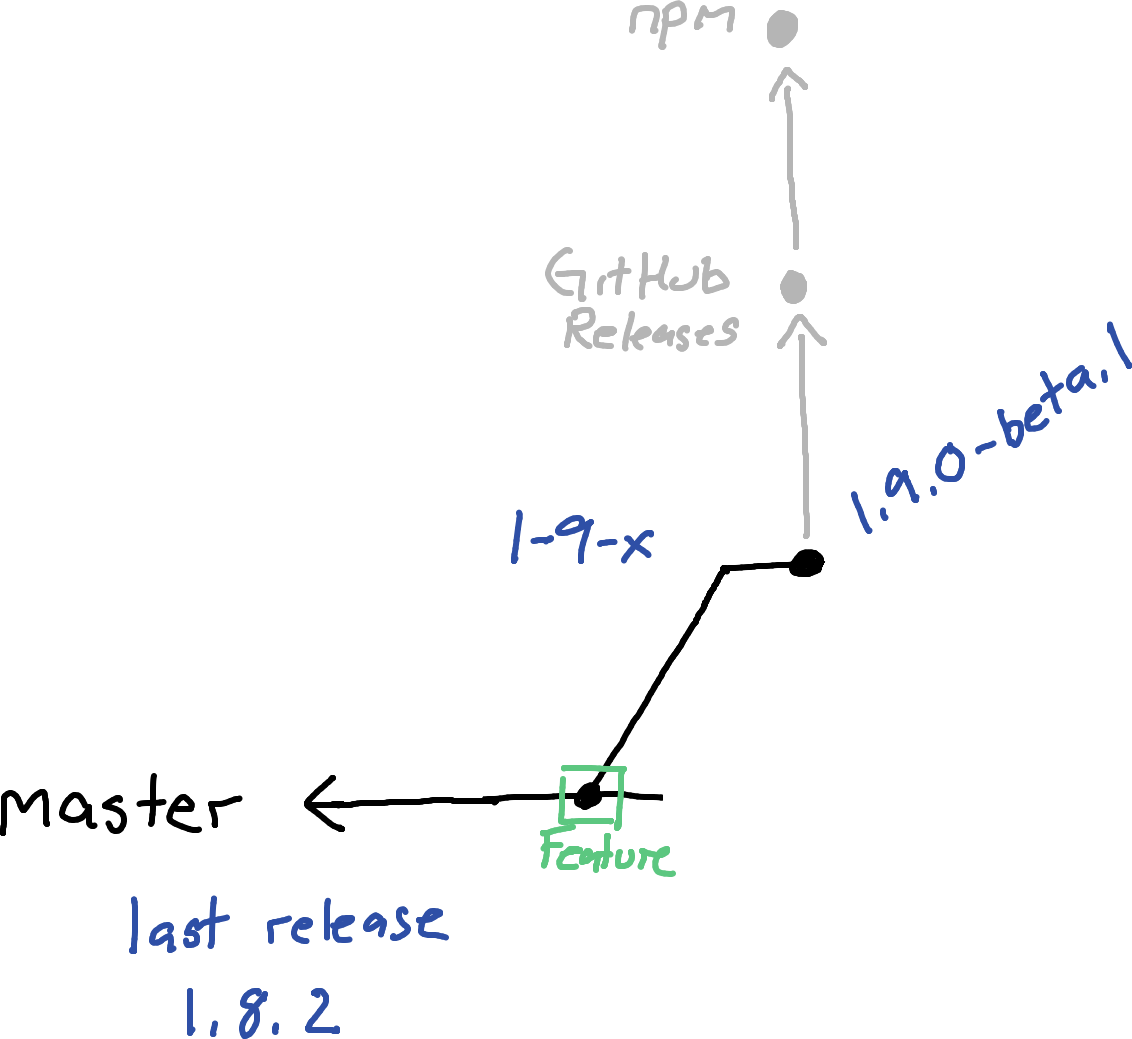 npm
GitHub
Releases
1.9.0-beta.1
1-9-x
master
Feature
last release
1.8.2